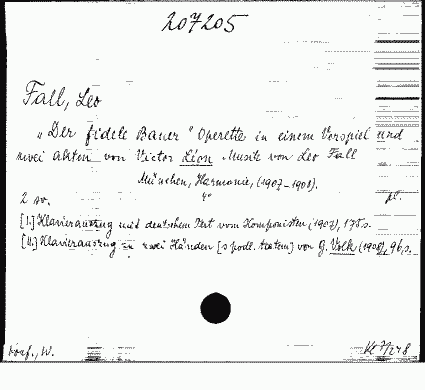 207205
Fall, Leo
„Der fidele Bauer" Operette in einem Vorspiel und
zwei akten von Victor Lion Musik von Leo Fall
München, Harmonie, (1907-1908).
2 sv. 4° pl.
[I.] Klavierauszug mit deutschem Text vom Komponisten, (1907), 175 s.
[II.] Klavierauszug zu zwei Händen [s podl. textem] von G. Volk (1908), 96 s.
Vorf., W.